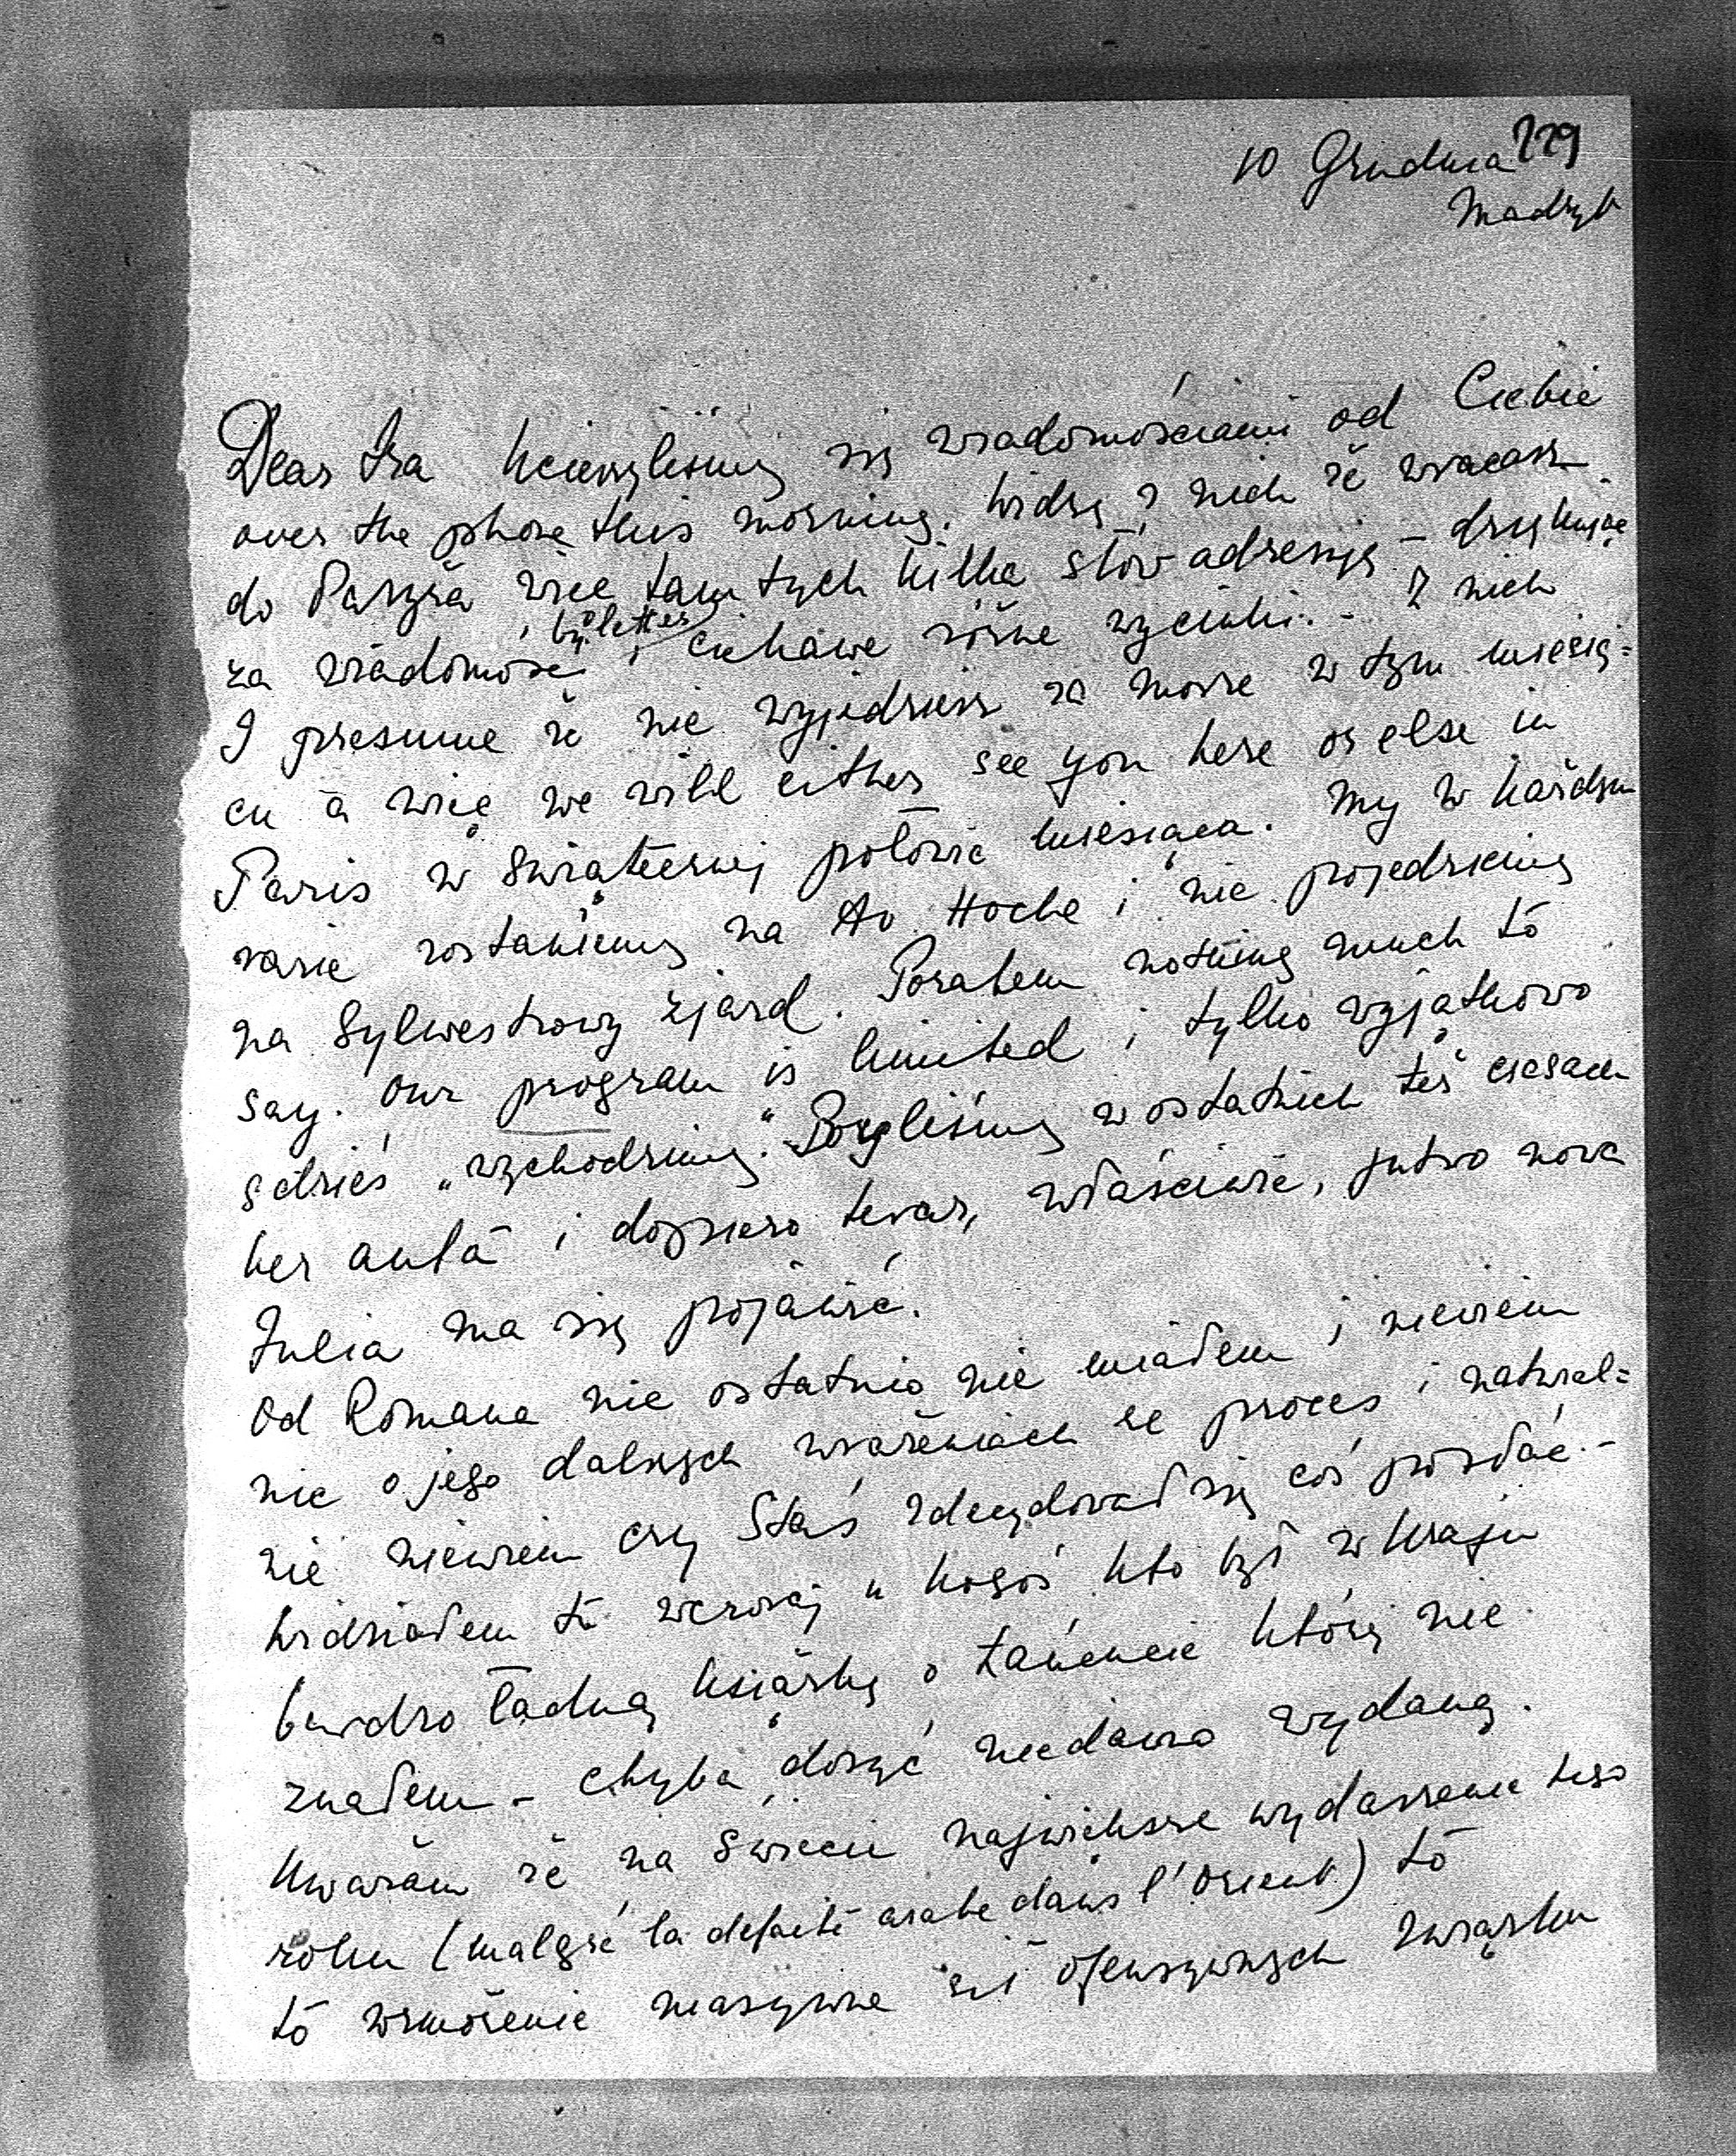 229
10 Grudnia
Madryt
Dear Ira Ucieszyliśmy się wiadomościami od Ciebie
over the phone this morning. Widzę z nich że wracasz
do Paryża więc tam tych kilka słów adresuję – dziękując
za wiadomość by letter i ciekawe różne wycinki. – Z nich
I presume że nie wyjedziesz za morze w tym miesią=
cu a więc we will either see you here or else in
Paris w świątecznej połowie miesiąca. My w każdym
razie zostaniemy na Av Hoche i nie pojedziemy
na Sylwestrowy zjazd. Pozatem nothing much to
say. Our program is limited i tylko wyjątkowo
gdzieś „wychodzimy." Byliśmy w ostatnich też czasach
bez auta i dopiero teraz, właściwie, jutro nowa
Julia ma się pojawić.
Od Romana nic ostatnio nie miałem i niewiem
nic o jego dalszych wrażeniach re proces i natural=
nie niewiem czy Staś zdecydował się coś posłać. –
Widziałem tu wczoraj u kogoś kto był w Kraju
bardzo ładną książkę o Łańcucie której nie
znałem – chyba dosyć niedawno wydaną.
Uważam że na świecie największe wydarzenie tego
roku (malgré la defaite arabe dans l'Orient) to
to wzmożenie masywne sił ofensywnych Związku